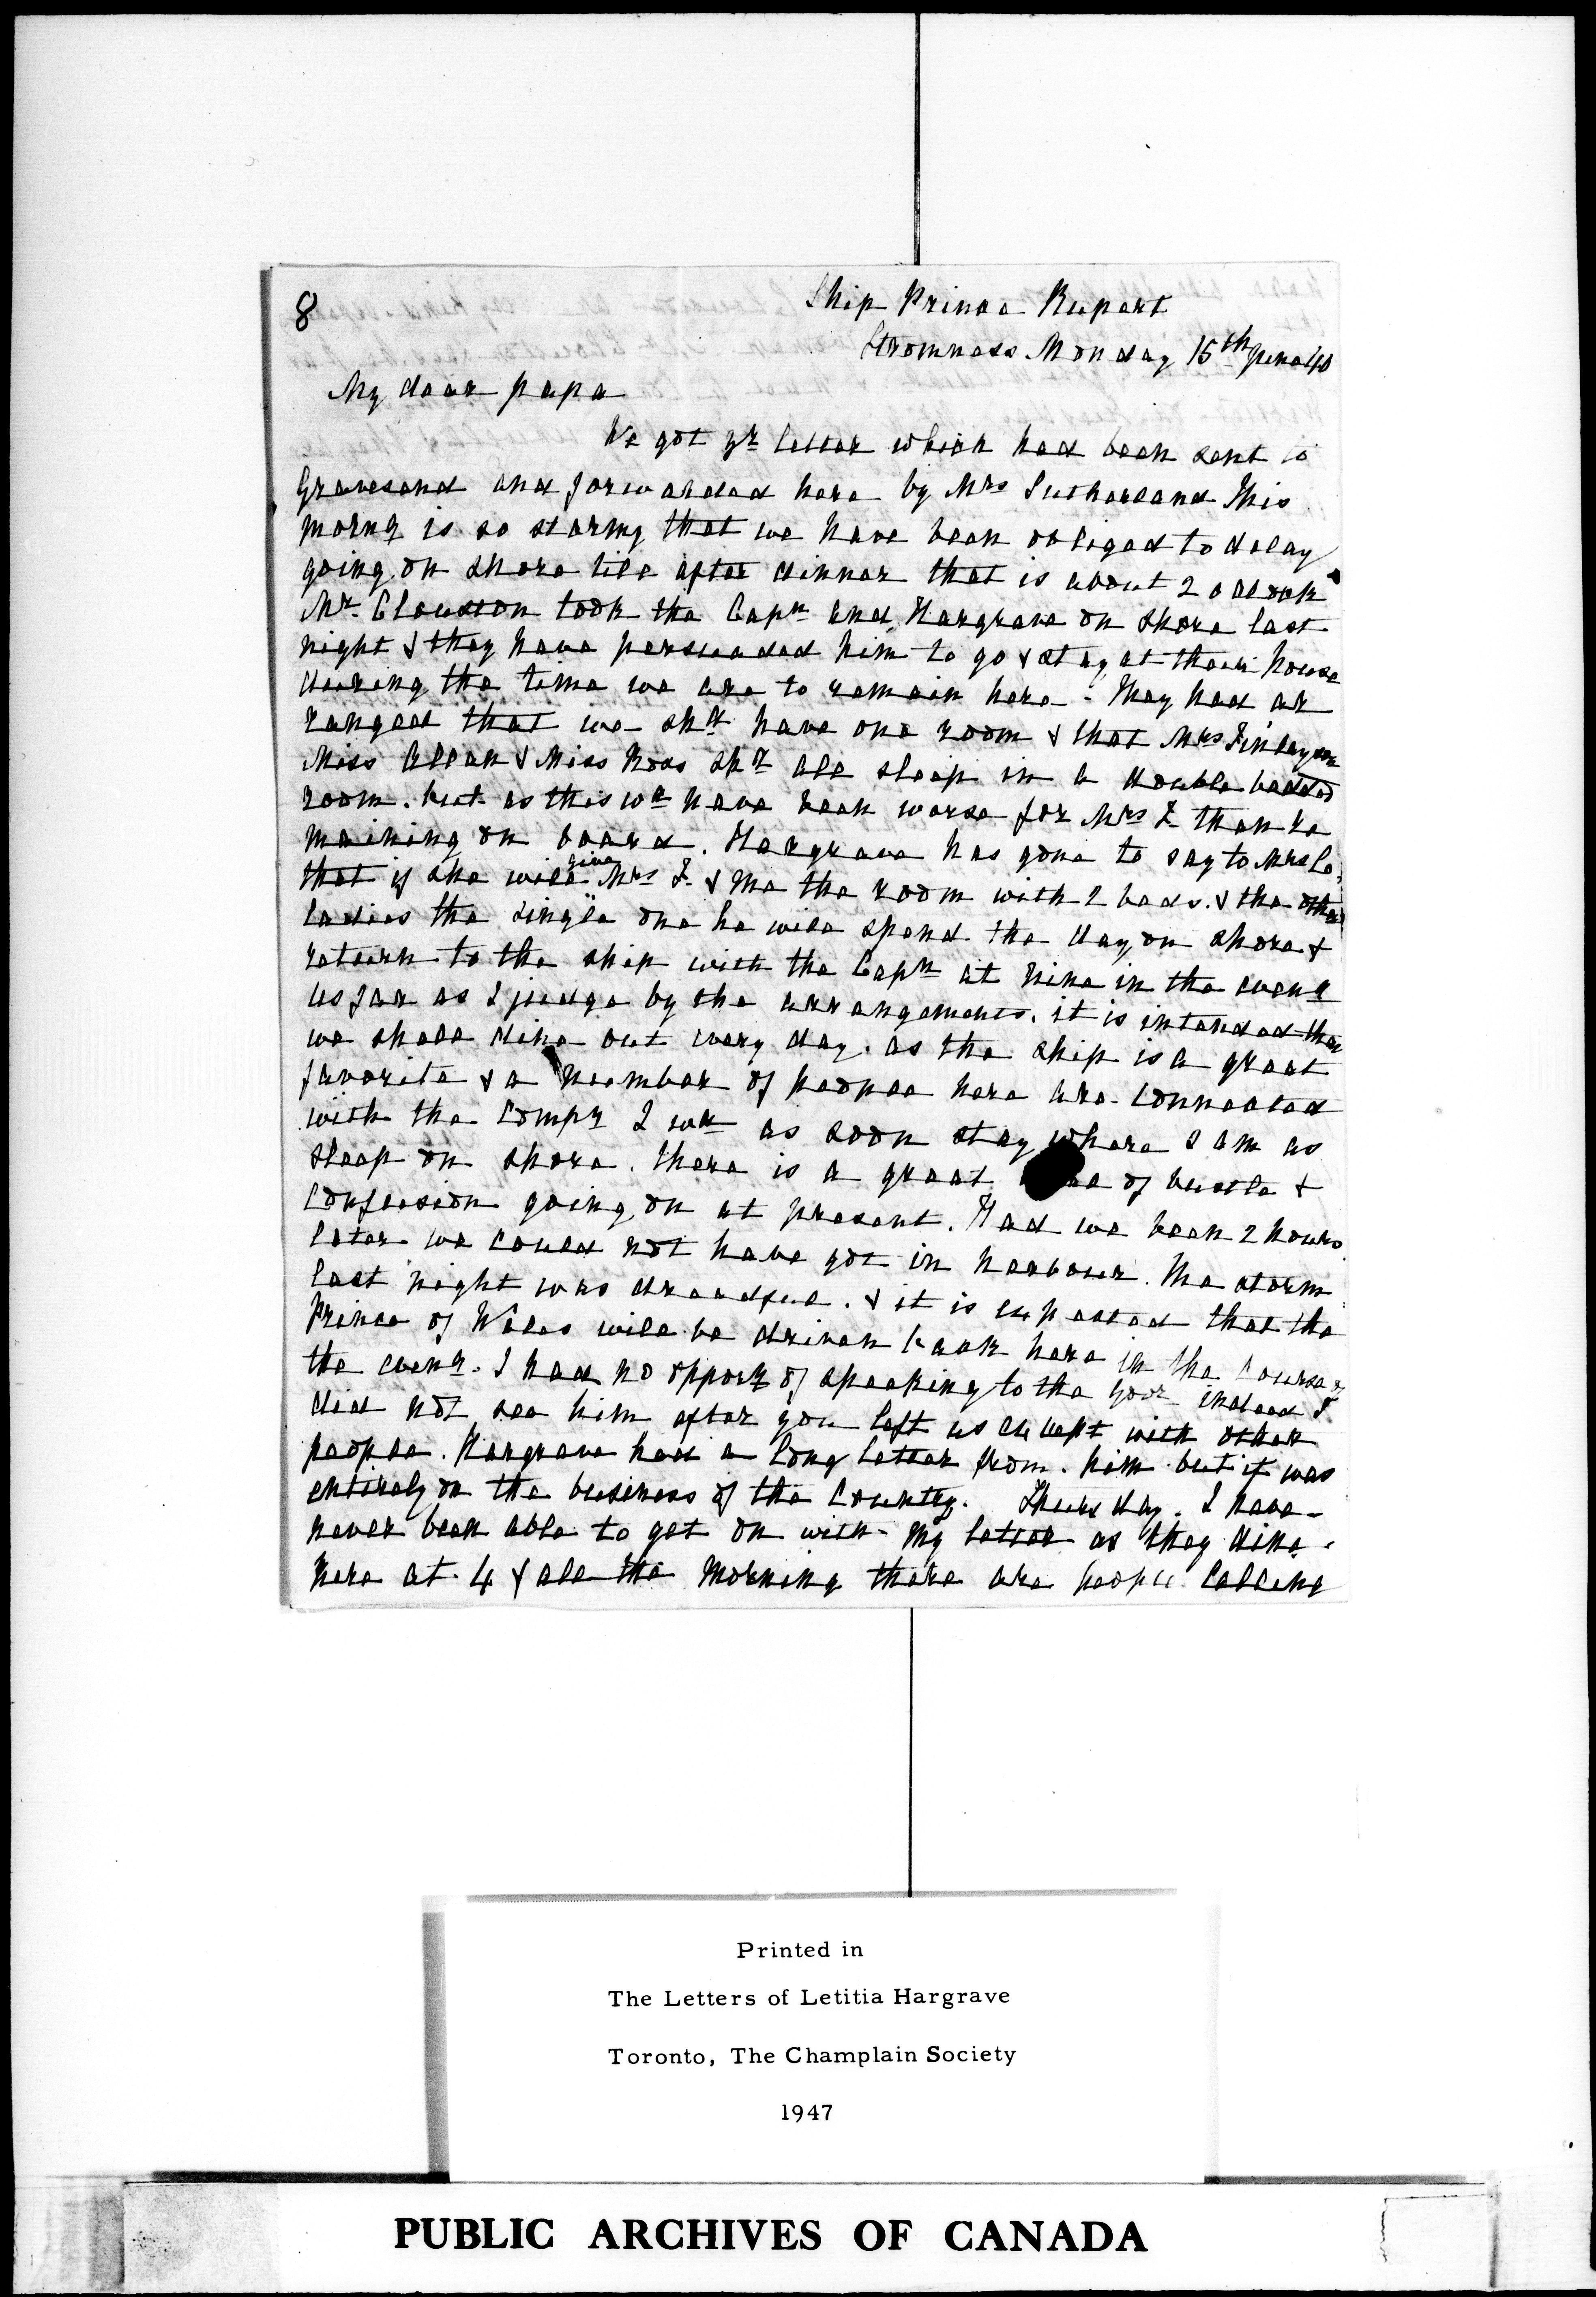 8
Ship Prince Rupert
Stromness Monday 15th June/40
My dear papa
We got yr letter which had been sent to
Gravesend and forwarded here by Mrs Sutherland This
morng is so stormy that we have been obliged to delay
going on shore till after dinner that is about 2 oclock
Mr. Clouston took the Capn and Hargrave on shore last
night & they have persuaded him to go & stay at their house
during the time we are to remain here - They had ar
ranged that we shd have one room & that Mrs Finlayson
Miss Allan & Miss Ross shd all sleep in a double bedded
room. but as this wd have been worse for Mrs F. than re
maining on board. Hargrave has gone to say to Mrs Co
that if she will give Mrs F. & me the room with 2 beds. & the other
ladies the single one he will spend the day on shore &
return to the ship with the Capn at nine in the eveng
as far as I judge by the arrangements. it is intended that
we shall dine out every day. as the ship is a great
favorite & a number of people here are connected
with the Compy I wd as soon stay where I am as
sleep on shore. there is a great of bustle &
confusion going on at present. Had we been 2 hours
later we could not have got in harbour. The storm
last night was dreadful. & it is expected that the
Prince of Wales will be driven back here in the course of
the eveng. I had no opporty of speaking to the Govr indeed I
did not see him after you left us except with other
people. Hargrave had a long letter from. him but it was
entirely on the business of the Country. Thursday. I have
never been able to get on with my letter as they dine
here at 4 & all the morning there are people calling
Printed in
The Letters of Letitia Hargrave
Toronto, The Champlain Society
1947
PUBLIC ARCHIVES OF CANADA